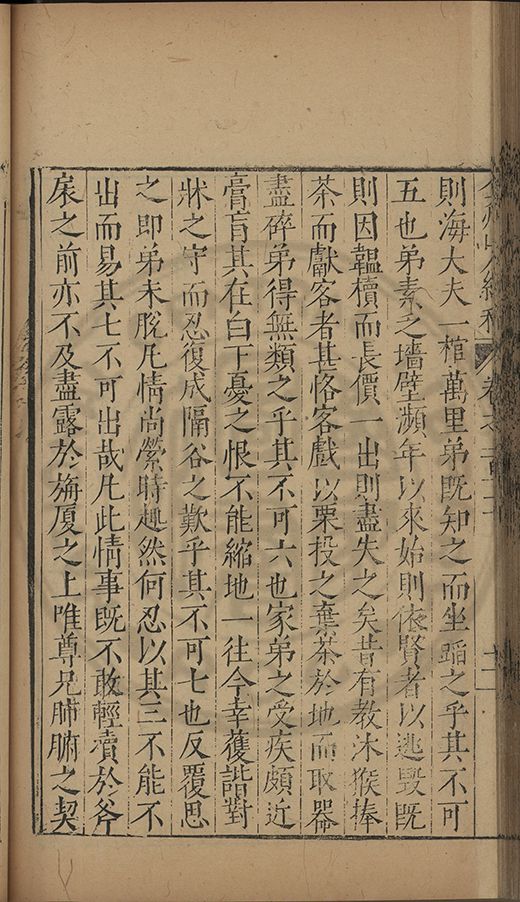 則海大夫一棺萬里弟旣知之而坐蹈之乎其不可
五也弟素乏墻壁瀕年以來始則依賢者以逃毀旣
則因韞櫝而長價一出則盡失之矣昔有教沐猴捧
茶而獻客者甚恪客戲以栗投之棄茶於地而取器
盡碎弟得無類之乎其不可六也家弟之受疾頗近
膏肓其在白下憂之恨不能縮地一往今幸獲諧對
牀之守而忍復成隔谷之歎乎其不可七也反覆思
之即弟未脫凡情尚縈時趣然何忍以其三不能不
出而易其七不可出哉凡此情事旣不敢輕瀆於斧
扆之前亦不及盡露於旃厦之上唯尊兄肺腑之契